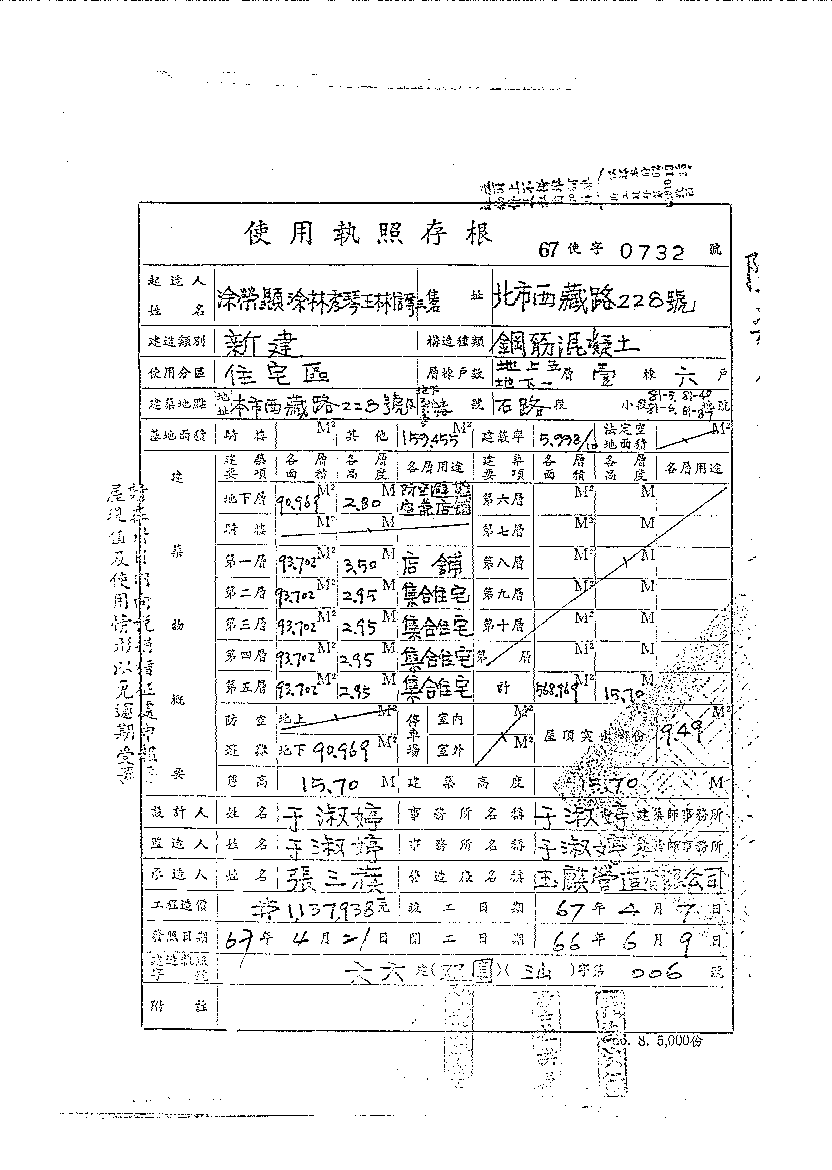 使用執照存根
67使字0732號
起造人姓名 涂榮顯 涂林秀琴 王林信 住址 北市西藏路228號
建造類別 新建 構造種類 鋼筋混凝土
使用分區 住宅區 層棟戶數 地上五 地下一 層 壹 棟 六 戶
建築地點 地址 本市西藏路228號 號 石路 段 小段 81-5, 81-40 地號
基地面積 騎樓 M² 其他 159.455 M² 建蔽率 5.998/10 法定空地面積 M²
建築物概要
建築要項 各層面積 各層高度 各層用途 建築要項 各層面積 各層高度 各層用途
地下層 90.969 M² 2.80 M 防空避難室兼店鋪 第六層 M² M
騎樓 M² M 第七層 M² M
第一層 93.702 M² 3.50 M 店鋪 第八層 M² M
第二層 93.702 M² 2.95 M 集合住宅 第九層 M² M
第三層 93.702 M² 2.95 M 集合住宅 第十層 M² M
第四層 93.702 M² 2.95 M 集合住宅 第 層 M² M
第五層 93.702 M² 2.95 M 集合住宅 計 15.70 M
防空避難 地上 M² 停車場 室內 M² 屋頂突出部份 9.49 M²
地下 90.969 M² 室外 M²
簷高 15.70 M 建築高度 15.70 M
設計人 姓名 于淑婷 事務所名稱 于淑婷建築師事務所
監造人 姓名 于淑婷 事務所名稱 于淑婷建築師事務所
承造人 姓名 張三 營造廠名稱 玉麟營造有限公司
工程造價 1,137,938元 竣工日期 67年4月7日
發照日期 67年4月21日 開工日期 66年6月9日
建造執照字號 六六建(双園)()字第006號
附註
8. 5,000份
屋現值及使用情形以免逾期受罰